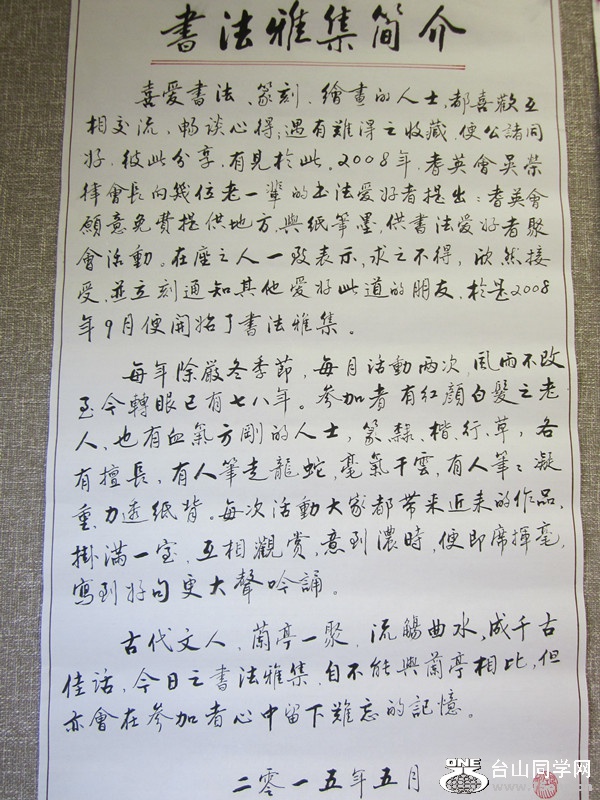 書法雅集简介
喜爱書法、篆刻、繪畫的人士,都喜歡互
相交流,暢谈心得;遇有難得之收藏,便公諸同
好,彼此分享,有見於此,2008年,耆英會吴榮
會長向幾位老一輩的书法爱好者提出:耆英會
願意免費提供地方,與紙筆墨,供書法爱好者聚
會活動。在座之人一致表示,求之不得,欣然接
受,並立刻通知其他爱好此道的朋友,於是2008
年9月便開始了書法雅集。
每年除嚴冬季節,每月活動兩次,風雨不改
至今轉眼已有七八年。參加者有红顔白髮之老
人,也有血氣方剛的人士,篆、隸、楷、行、草,各
有擅長,有人筆走龍蛇,毫氣干雲,有人筆筆凝
重,力透纸背。每次活動大家都带来近来的作品,
掛滿一室,互相觀赏,意到濃時,便即席揮毫,
寫到好句更大聲吟誦。
古代文人,蘭亭一聚,流觴曲水,成千古
佳话,今日之書法雅集,自不能與蘭亭相比,但
亦會在參加者心中留下難忘的記憶。
二零一五年五月
ONE
台山同学网